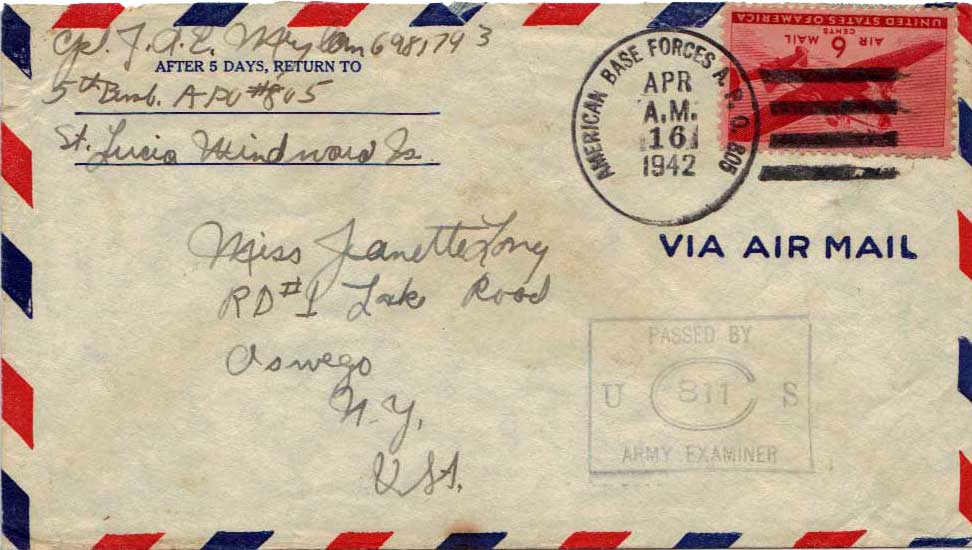 Cpl. J. A. E. 6981793
AFTER 5 DAYS, RETURN TO
5th Bomb. APO #805
St. Lucia Windward Is.
AMERICAN BASE FORCES A.P.O. 805
APR
A.M.
16
1942
UNITED STATES OF AMERICA
AIR 6 MAIL
CENTS
VIA AIR MAIL
Miss Jeanette Long
RD #1 Lake Road
Oswego
N.Y.
USA.
PASSED BY
U 811 S
ARMY EXAMINER